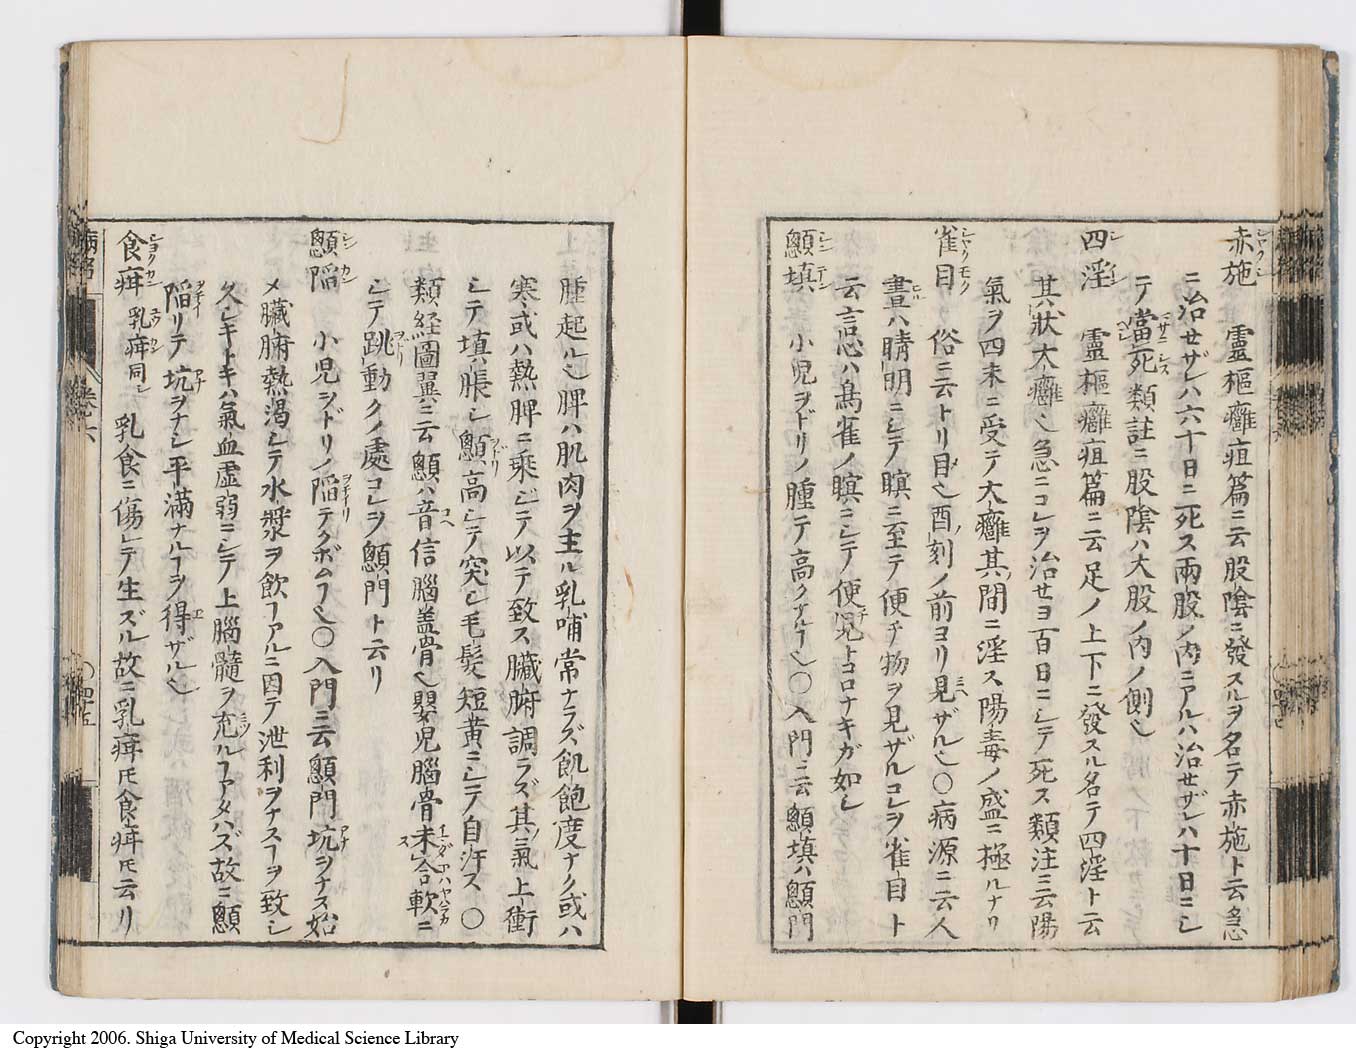 赤施 靈樞癰疽篇ニ云股陰ニ發スルヲ名テ赤施ト云急
ニ治セザレハ六十日ニ死ス兩股ノ内ニアルハ治セザレハ十日ニシ
テ當死類註ニ股陰ハ大股ノ内ノ側也
四淫 靈樞癰疽篇ニ云足ノ上下ニ發スル名テ四淫ト云
其狀大癰也急ニコレヲ治セヨ百日ニシテ死ス類注ニ云陽
氣ヲ四末ニ受テ大癰其間ニ淫ス陽毒ノ盛ニ極ルナリ
雀目 俗ニ云トリ目也酉ノ刻ノ前ヨリ見ヘザル也〇病源ニ云人
晝ハ晴明ニシテ瞑ニ至テ便チ物ヲ見ザルコレヲ雀目ト
云言心ハ鳥雀ノ瞑ニシテ便見トコロナキガ如シ
顖填 小児ヲドリノ腫テ高クナルヿ也〇入門ニ云顖填ハ顖門
腫起ル也脾ハ肌肉ヲ主ル乳哺常ナラズ飢飽度ナク或ハ
寒或ハ熱脾ニ乘ジテ以テ致ス臟腑調ラズ其氣上衝
シテ填脹シ顖高シテ突シ毛髮短黄ニシテ自汗ス〇
類経圖翼ニ云顖ハ音信腦盖骨也嬰児腦骨未合軟ニ
シテ跳動クノ處コレヲ顖門ト云リ
顖陷 小児ヲドリノ陷テクボムヿ也〇入門ニ云顖門坑ヲナス始
メ臟腑熱渇シテ水漿ヲ飲ヿアルニ因テ泄利ヲナスヿヲ致シ
久シキトキハ氣血虚弱ニシテ上腦髓ヲ充ルヿアタハズ故ニ顖
陷リテ坑ヲナシ平滿ナルヿヲ得ザル也
食疳 乳疳同シ 乳食ニ傷レテ生ズル故ニ乳疳トモ食疳トモ云リ
卷之六
〇四十五